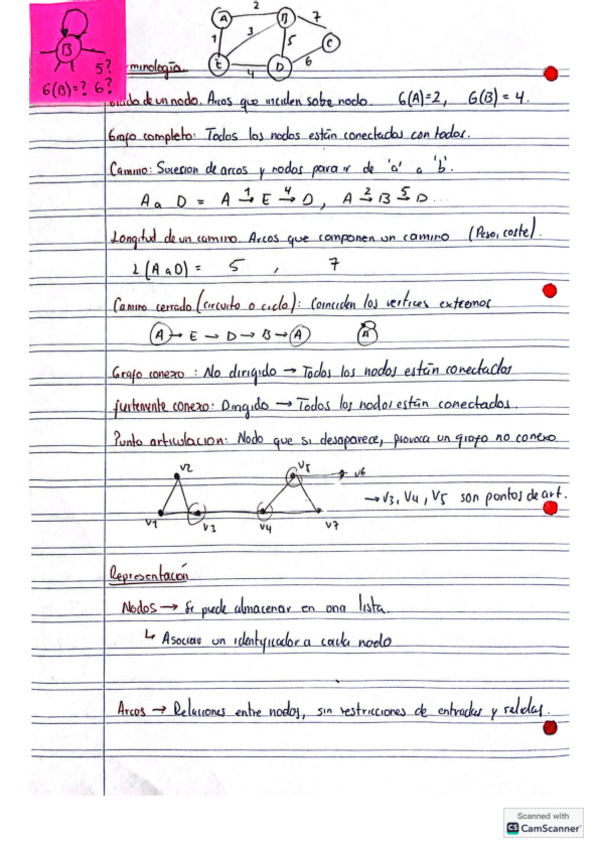 A 2 B 7 C
1 3 5 6
E 4 D
B
5?
G(B)=? 6?
minología
Grado de un nodo. Arcos que inciden sobre nodo. G(A)=2, G(B)=4.
Grafo completo: Todos los nodos están conectados con todos.
Camino: Sucesion de arcos y nodos para ir de 'a' a 'b'.
A a D = A 1→ E 4→ D, A 2→ B 5→ D...
Longitud de un camino. Arcos que componen un camino (Peso, coste).
L(A a D) = 5 , 7
Camino cerrado (circuito o ciclo): Coinciden los vertices extremos
A → E → D → B → A A
Grafo conexo: No dirigido → Todos los nodos están conectados
fuertemente conexo: Dirigido → Todos los nodos están conectados.
Punto articulacion: Nodo que si desaparece, provoca un grafo no conexo
V2 V5 V6
→ V3, V4, V5 son puntos de art.
V1 V3 V4 V7
Representación
Nodos → Se puede almacenar en una lista.
↳ Asociar un identificador a cada nodo
Arcos → Relaciones entre nodos, sin restricciones de entradas y salidas.
Scanned with
CS CamScanner